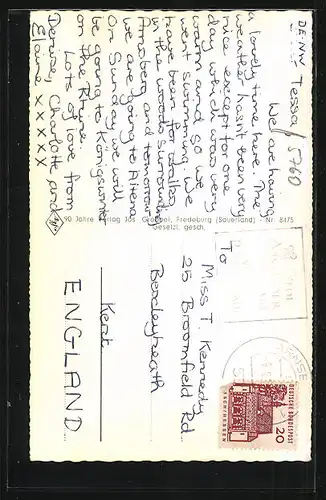 DE-NW
Tessa / 5760
We are having
a lovely time here. The
weather hasn't been very
nice except for one
day which was very
warm and so we
went swimming. We
have been for walks
in the woods surrounding
Arnsberg and tomorrow
we are going to Altena
On Sunday we will
be going to Königswinter
on the Rhine.
Lots of love from
Denise, Charlotte and
Elaine x x x x x
90 Jahre Verlag Jos. Grobbel, Fredeburg (Sauerland) - Nr 8475
Gesetzl. gesch.
To
Miss T. Kennedy
25 Broomfield Rd
Bexleyheath
Kent
ENGLAND
DEUTSCHE BUNDESPOST
20